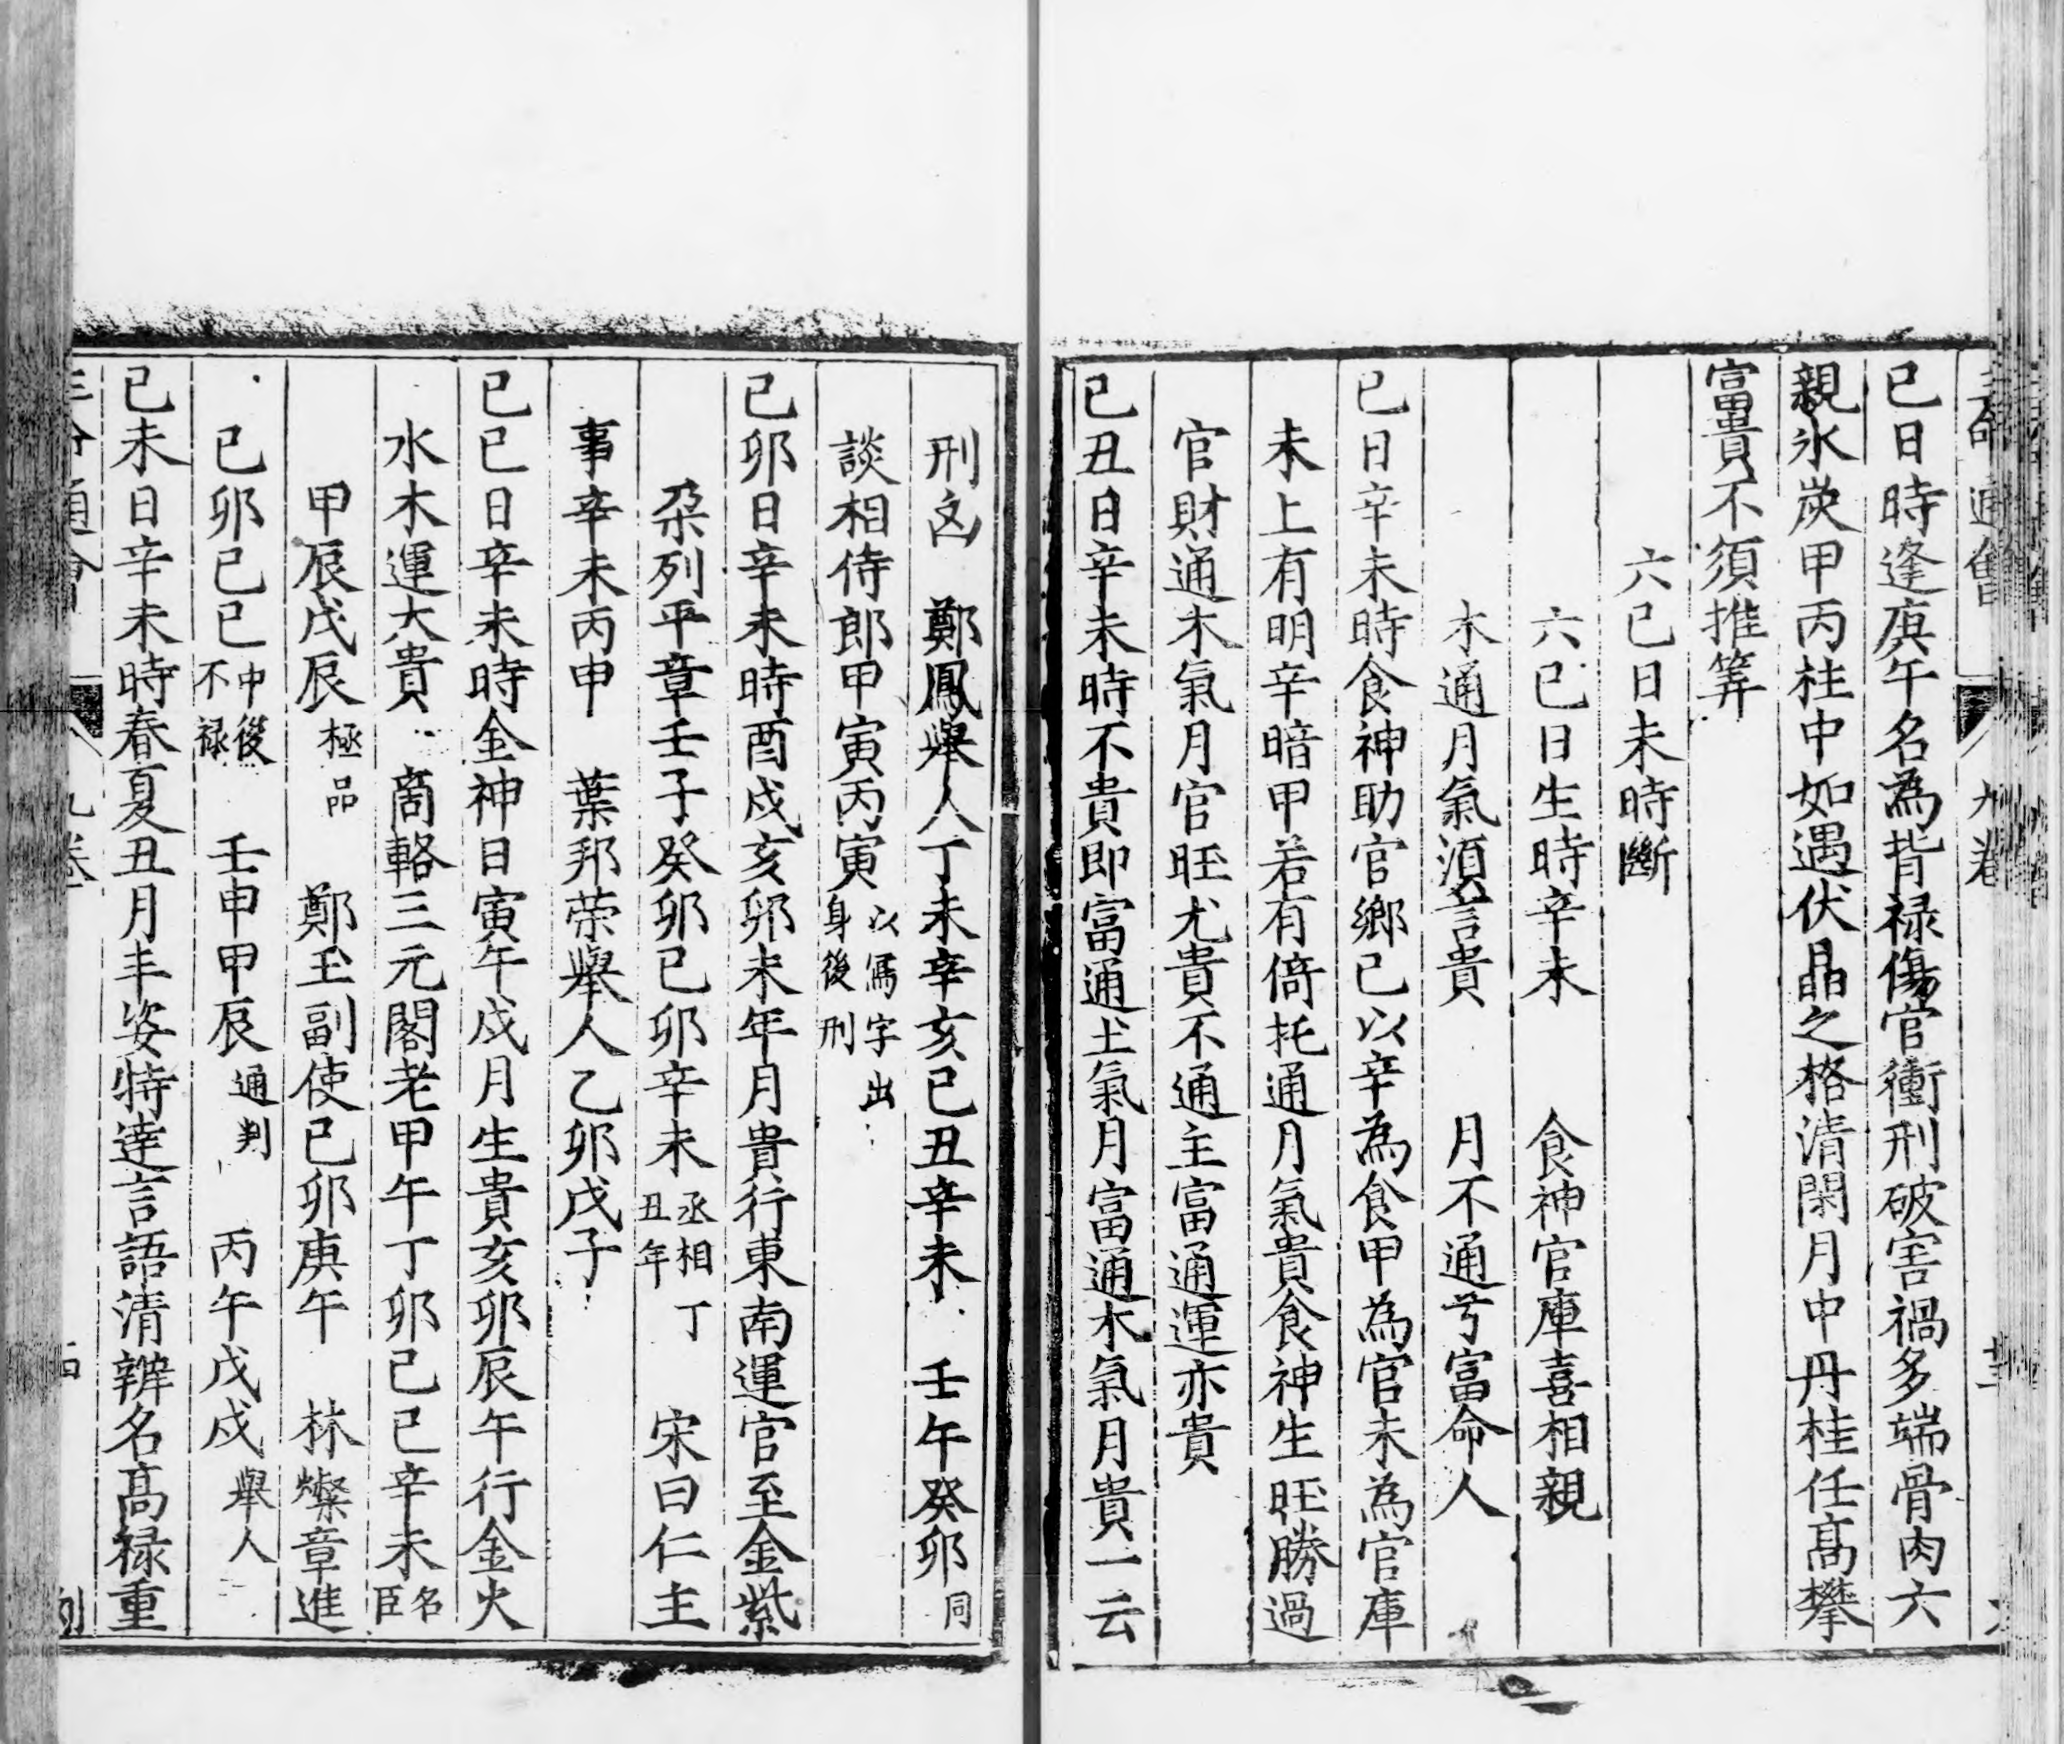 三命通會 九卷
己日時逢庚午名為背禄傷官衝刑破害禍多端骨肉六
親氷炭甲丙柱中如遇伏晶之格清閑月中丹桂任髙攀
富貴不須推筭
六己日未時斷
六己日生時辛未 食神官庫喜相親
木通月氣須言貴 月不通兮富命人
己日辛未時食神助官鄉己以辛為食甲為官未為官庫
未上有明辛暗甲若有倚托通月氣貴食神生旺勝過
官財通木氣月官旺尤貴不通主富通運亦貴
己丑日辛未時不貴即富通土氣月富通木氣月貴一云
刑囟 鄭鳳舉人丁未辛亥己丑辛未 壬午癸卯同
談相侍郎甲寅丙寅以寫字出身後刑
己卯日辛未時酉戌亥卯未年月貴行東南運官至金紫
朶列平章壬子癸卯己卯辛未丞相丁丑年 宋曰仁主
事辛未丙申 葉邦荣舉人乙卯戊子
己巳日辛未時金神日寅午戌月生貴亥卯辰午行金火
水木運大貴 商輅三元閣老甲午丁卯己巳辛未名臣
甲辰戊辰極品 鄭玉副使己卯庚午 林燦章進
己卯己巳中後不禄 壬申甲辰通判 丙午戊戌舉人
己未日辛未時春夏丑月丰姿特逹言語清辯名髙禄重